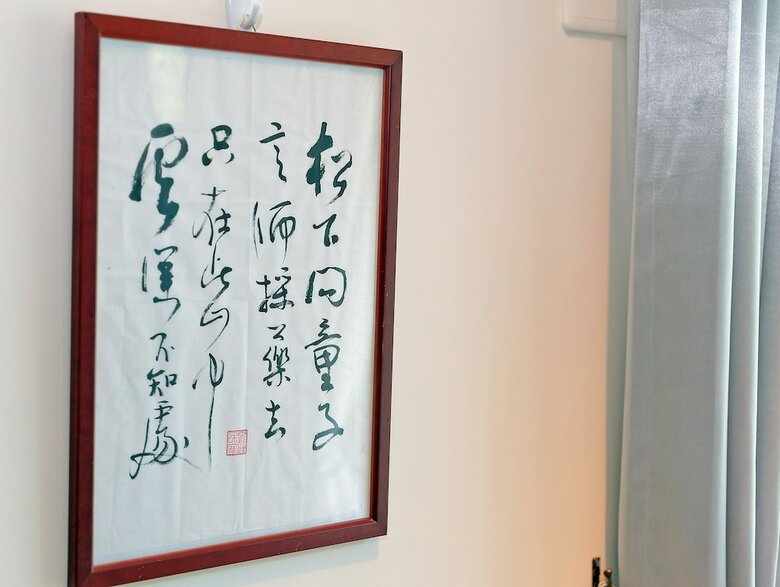 松下问童子
言师採藥去
只在此山中
雲深不知處